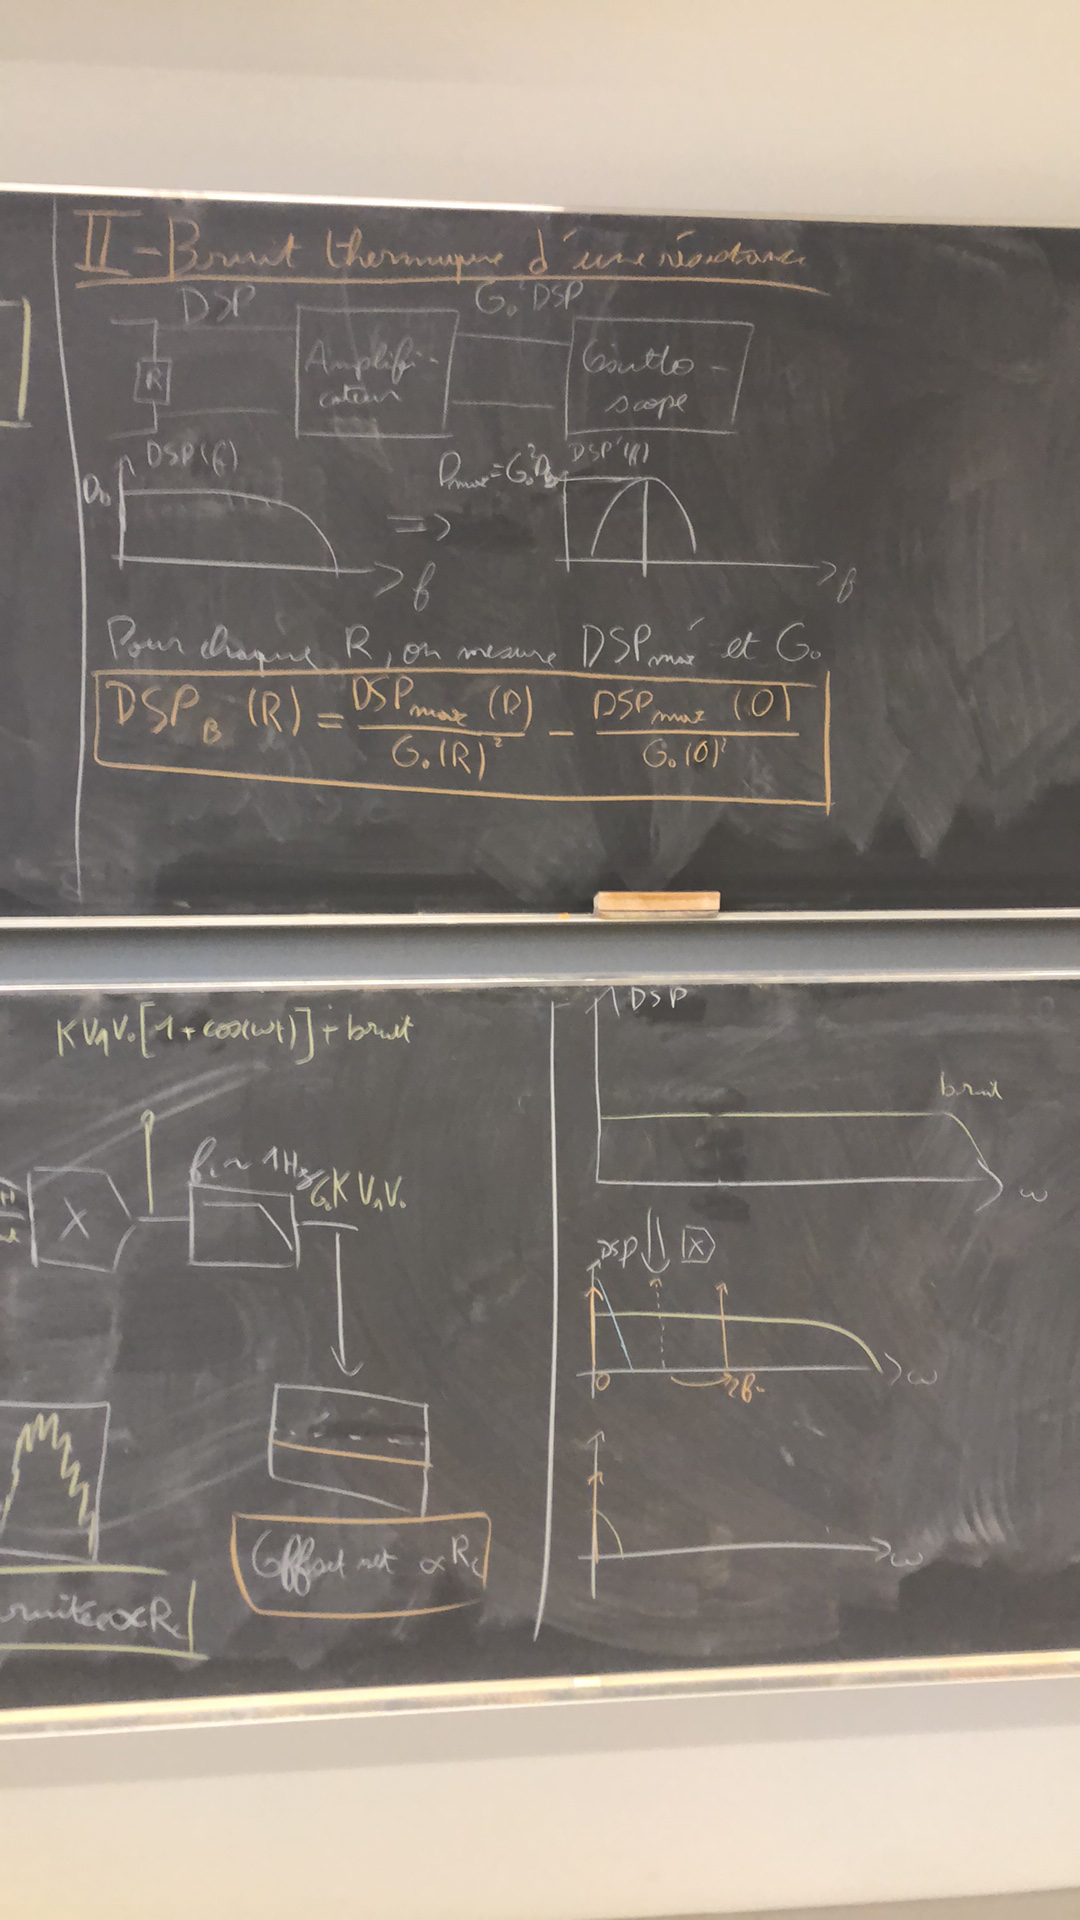 II - Bruit thermique d'une résistance
DSP
G₀² DSP
R
Amplifi-
cateur
Oscillo-
scope
DSP(f)
D₀
=>
Dmax = G₀² D₀
DSP'(f)
f
f
Pour chaque R, on mesure DSPmax et G₀
DSP_B (R) = DSPmax (R) / G₀(R)² - DSPmax (0) / G₀(0)²
K V₁ V₀ [1 + cos(ωt)] + bruit
X
~ 1Hz
G₀ K V₁ V₀
Offset net ∝ R_c
∝ R_c
DSP
bruit
ω
DSP
X
0
ω
ω